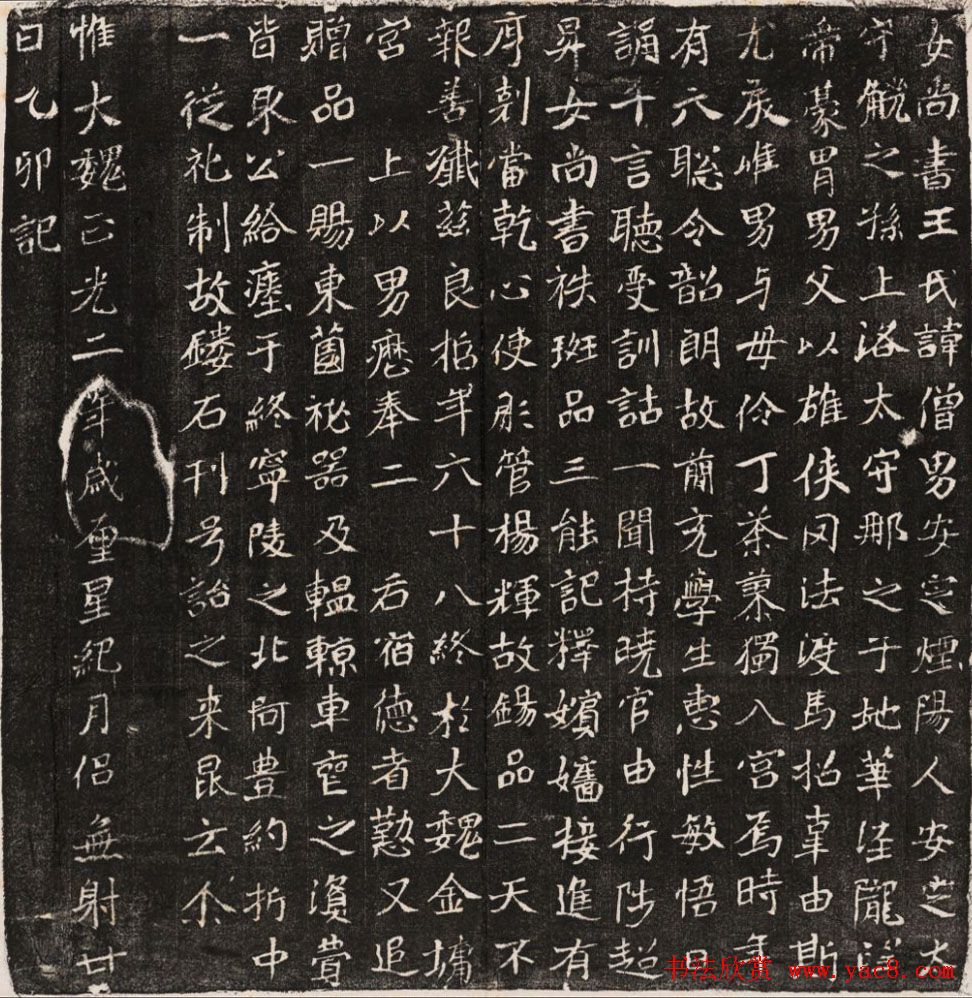 女尚書王氏諱僧男安定煙陽人安定太
守觥之孫上洛太守那之子地華涇隴望
帶豪胄男父以雄俠罔法渡馬招辜由斯
尤戾唯男与母伶丁荼蓼獨入宮焉時年
有六聡令韶朗故簡充學生惠性敏悟日
誦千言聽受訓詁一聞持曉官由行陟超
昇女尚書秩班品三能記釋嬪嬙接進有
序剋當乾心使彤管楊輝故錫品二天不
報善殲茲良招年六十八終於大魏金墉
宮 上以男歷奉二 后宿德者懃又追
贈品一賜東薗祕器及轀輬車窆之資費
皆取公給瘞于終寧陵之北阿豊約折中
一從礼制故鏤石刊号詒之来昆云尒
惟大魏正光二年歲釐星紀月侣無射廿
日乙卯記
书法欣赏 www.yac8.com